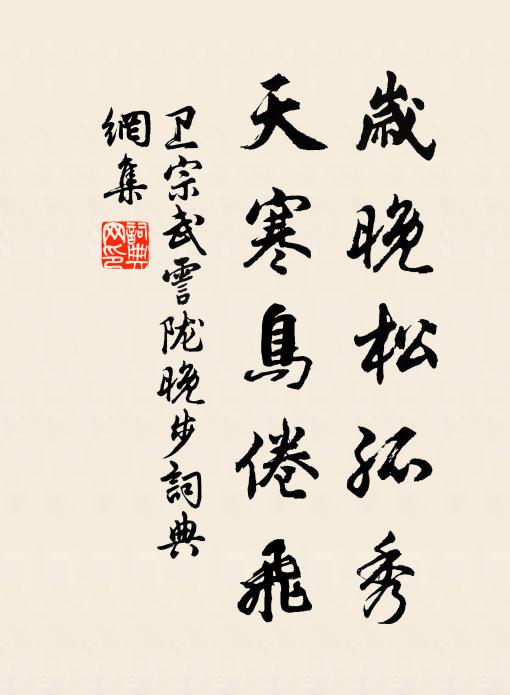 歲晚松孤秀
天寒鳥倦飛
卫宗武雪陇晚步詞典
網集
詞典網印